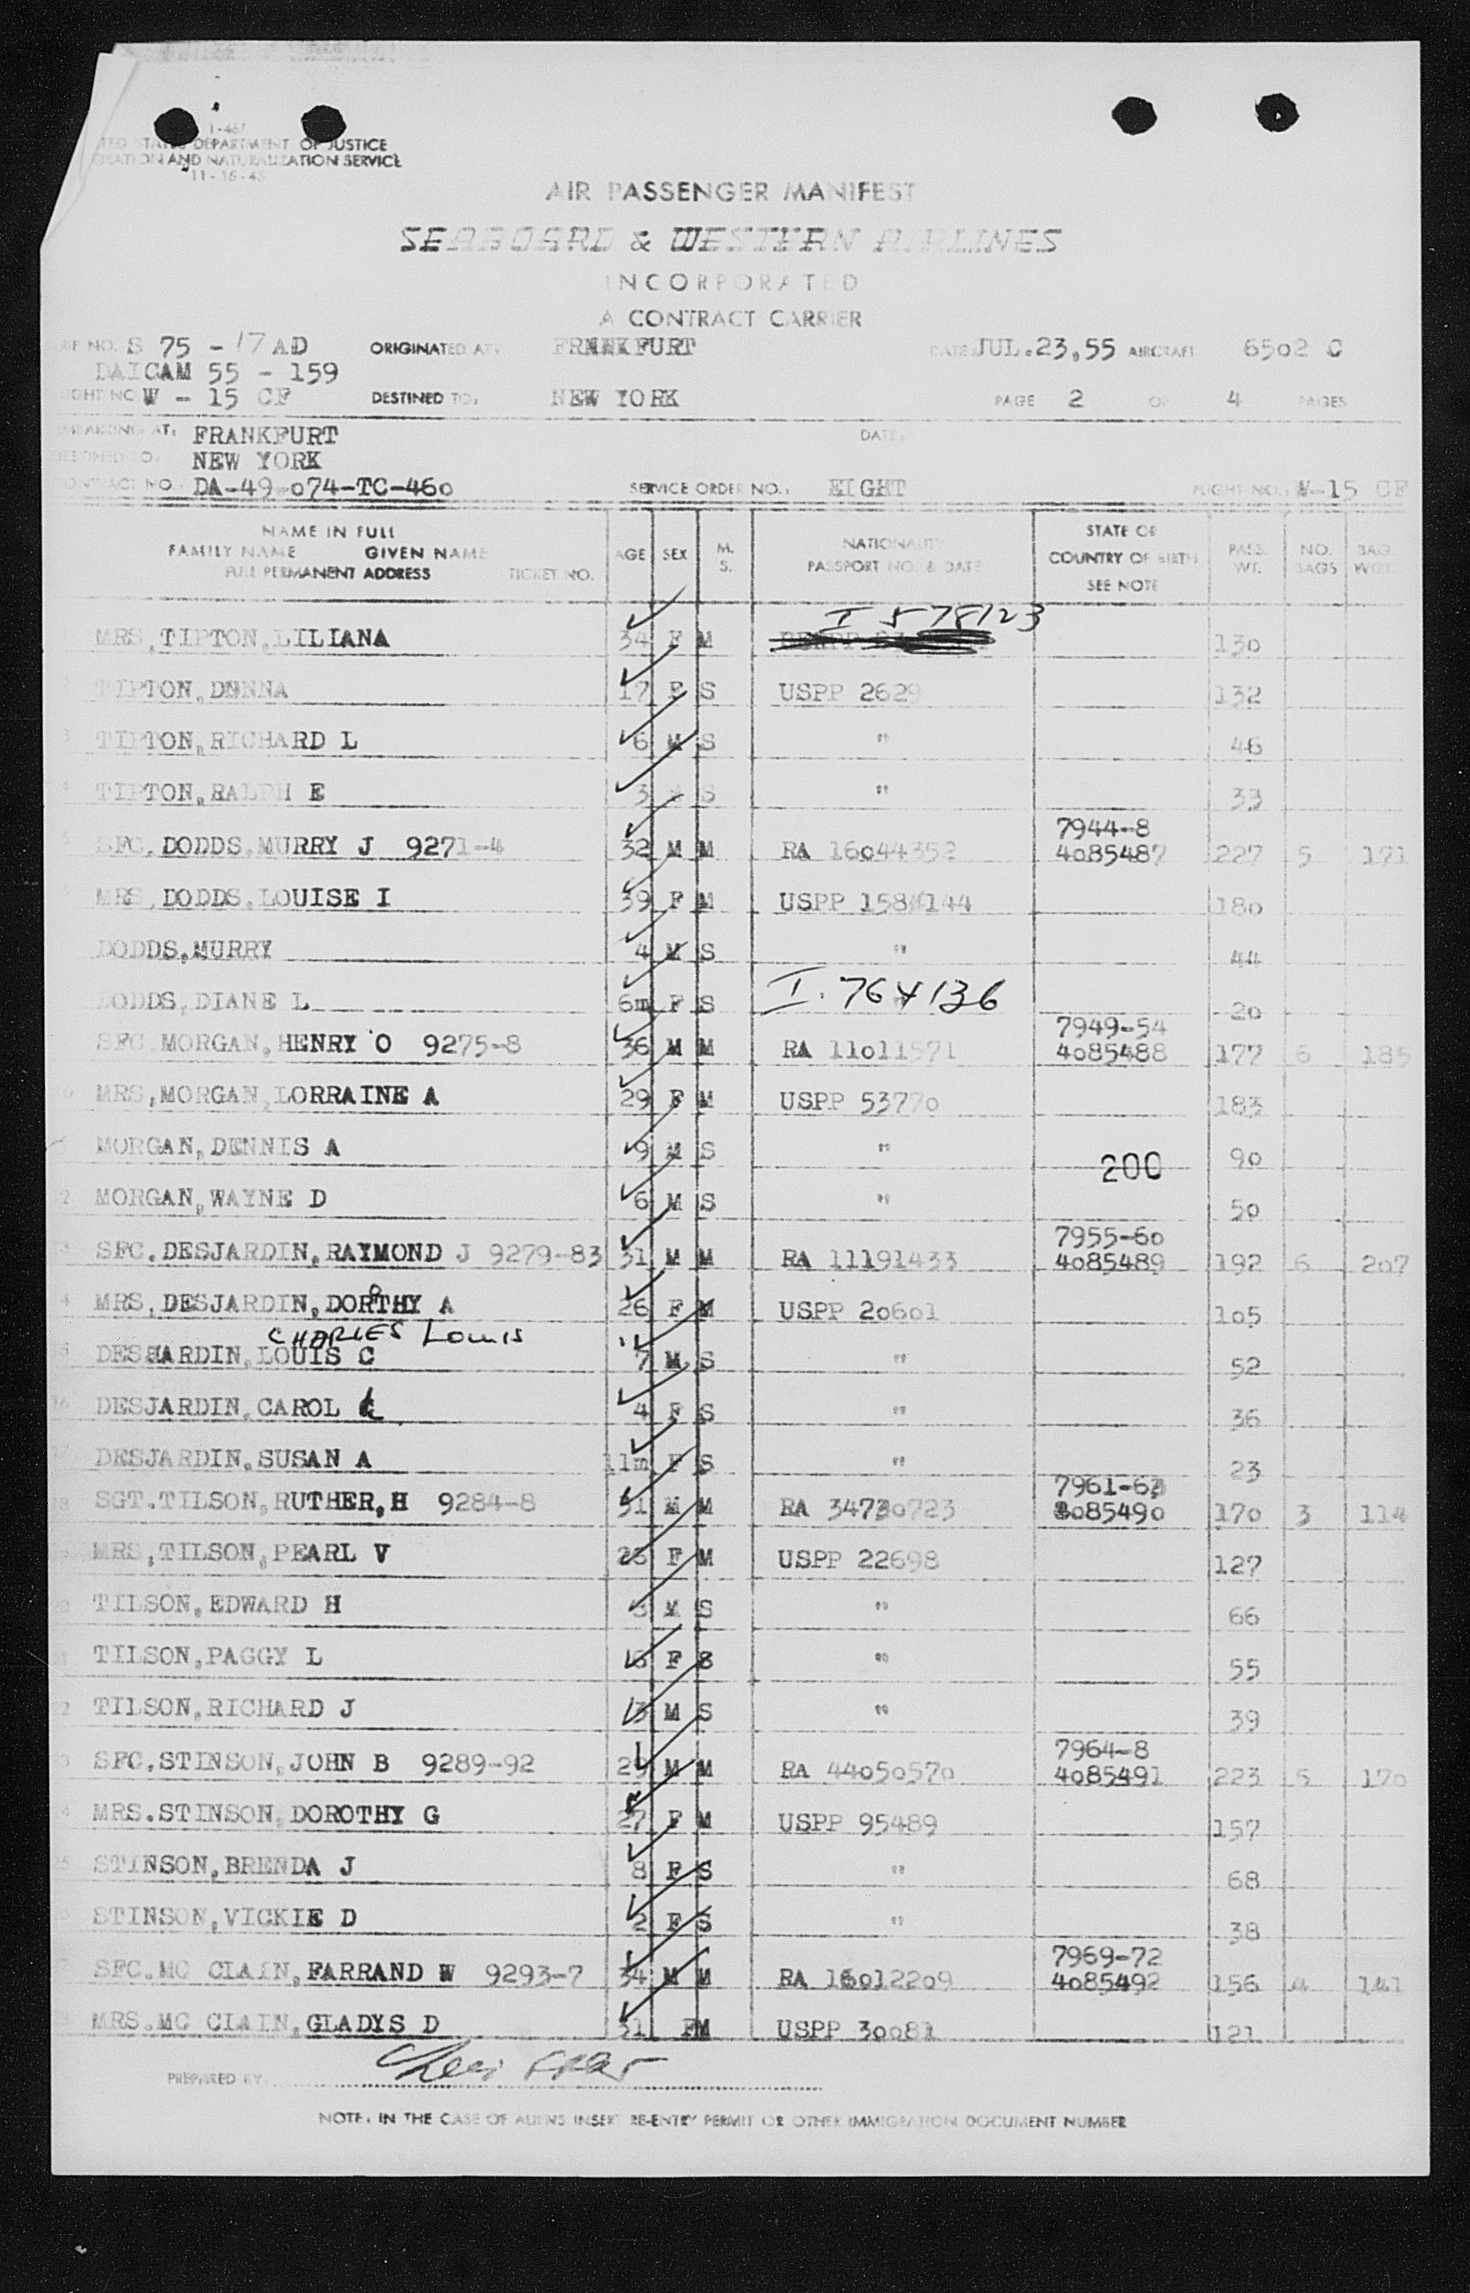 I-467
UNITED STATES DEPARTMENT OF JUSTICE
IMMIGRATION AND NATURALIZATION SERVICE
AIR PASSENGER MANIFEST
SEABOARD & WESTERN AIRLINES
INCORPORATED
A CONTRACT CARRIER
REF NO. S 75 - 17 AD ORIGINATED AT: FRANKFURT DATE: JUL.23,55 AIRCRAFT 6502 C
DAICAM 55 - 159
FLIGHT NO W - 15 CF DESTINED TO: NEW YORK PAGE 2 OF 4 PAGES
EMBARKING AT: FRANKFURT DATE:
DESTINED TO: NEW YORK
CONTRACT NO. DA-49-074-TC-460 SERVICE ORDER NO.: EIGHT FLIGHT NO.: W-15 CF
NAME IN FULL
FAMILY NAME GIVEN NAME
FULL PERMANENT ADDRESS TICKET NO. AGE SEX M. S. NATIONALITY PASSPORT NO. & DATE STATE OR COUNTRY OF BIRTH SEE NOTE PASS. WT. NO. BAGS BAG. WGT.
I 578123
MRS, TIPTON, LILIANA 34 F M 130
TIPTON, DENNA 17 F S USPP 2629 132
TIPTON, RICHARD L 6 M S " 46
TIPTON, RALPH E 3 S " 33
7944-8
SFC, DODDS, MURRY J 9271-4 32 M M RA 16044352 4085487 227 5 171
MRS, DODDS, LOUISE I 39 F M USPP 158 144 180
DODDS, MURRY 4 M S " 44
DODDS, DIANE L 6m F S I. 764136 20
7949-54
SFC MORGAN, HENRY O 9275-8 36 M M RA 11011571 4085488 177 6 185
MRS, MORGAN, LORRAINE A 29 F M USPP 53770 183
MORGAN, DENNIS A 9 M S " 200 90
MORGAN, WAYNE D 6 M S " 50
7955-60
SFC. DESJARDIN, RAYMOND J 9279-83 31 M M RA 11191433 4085489 192 6 207
MRS, DESJARDIN, DOROTHY A 26 F M USPP 20601 105
CHARLES LOUIS
DESJARDIN, LOUIS C 7 M S " 52
DESJARDIN, CAROL 4 F S " 36
DESJARDIN, SUSAN A 11m F S " 23
7961-63
SGT. TILSON, RUTHER, H 9284-8 31 M M RA 34730723 4085490 170 3 114
MRS, TILSON, PEARL V F M USPP 22698 127
TILSON, EDWARD H M S " 66
TILSON, PAGGY L F S " 55
TILSON, RICHARD J 3 M S " 39
7964-8
SFC. STINSON, JOHN B 9289-92 29 M M RA 44050570 4085491 223 5 170
MRS. STINSON, DOROTHY G 27 F M USPP 95489 157
STINSON, BRENDA J 8 F S " 68
STINSON, VICKIE D 2 F S " 38
7969-72
SFC. MC CLAIN, FARRAND W 9293-7 34 M M RA 16012209 4085492 156 4 141
MRS. MC CLAIN, GLADYS D 31 F M USPP 30081 121
PREPARED BY
NOTE: IN THE CASE OF ALIENS INSERT RE-ENTRY PERMIT OR OTHER IMMIGRATION DOCUMENT NUMBER